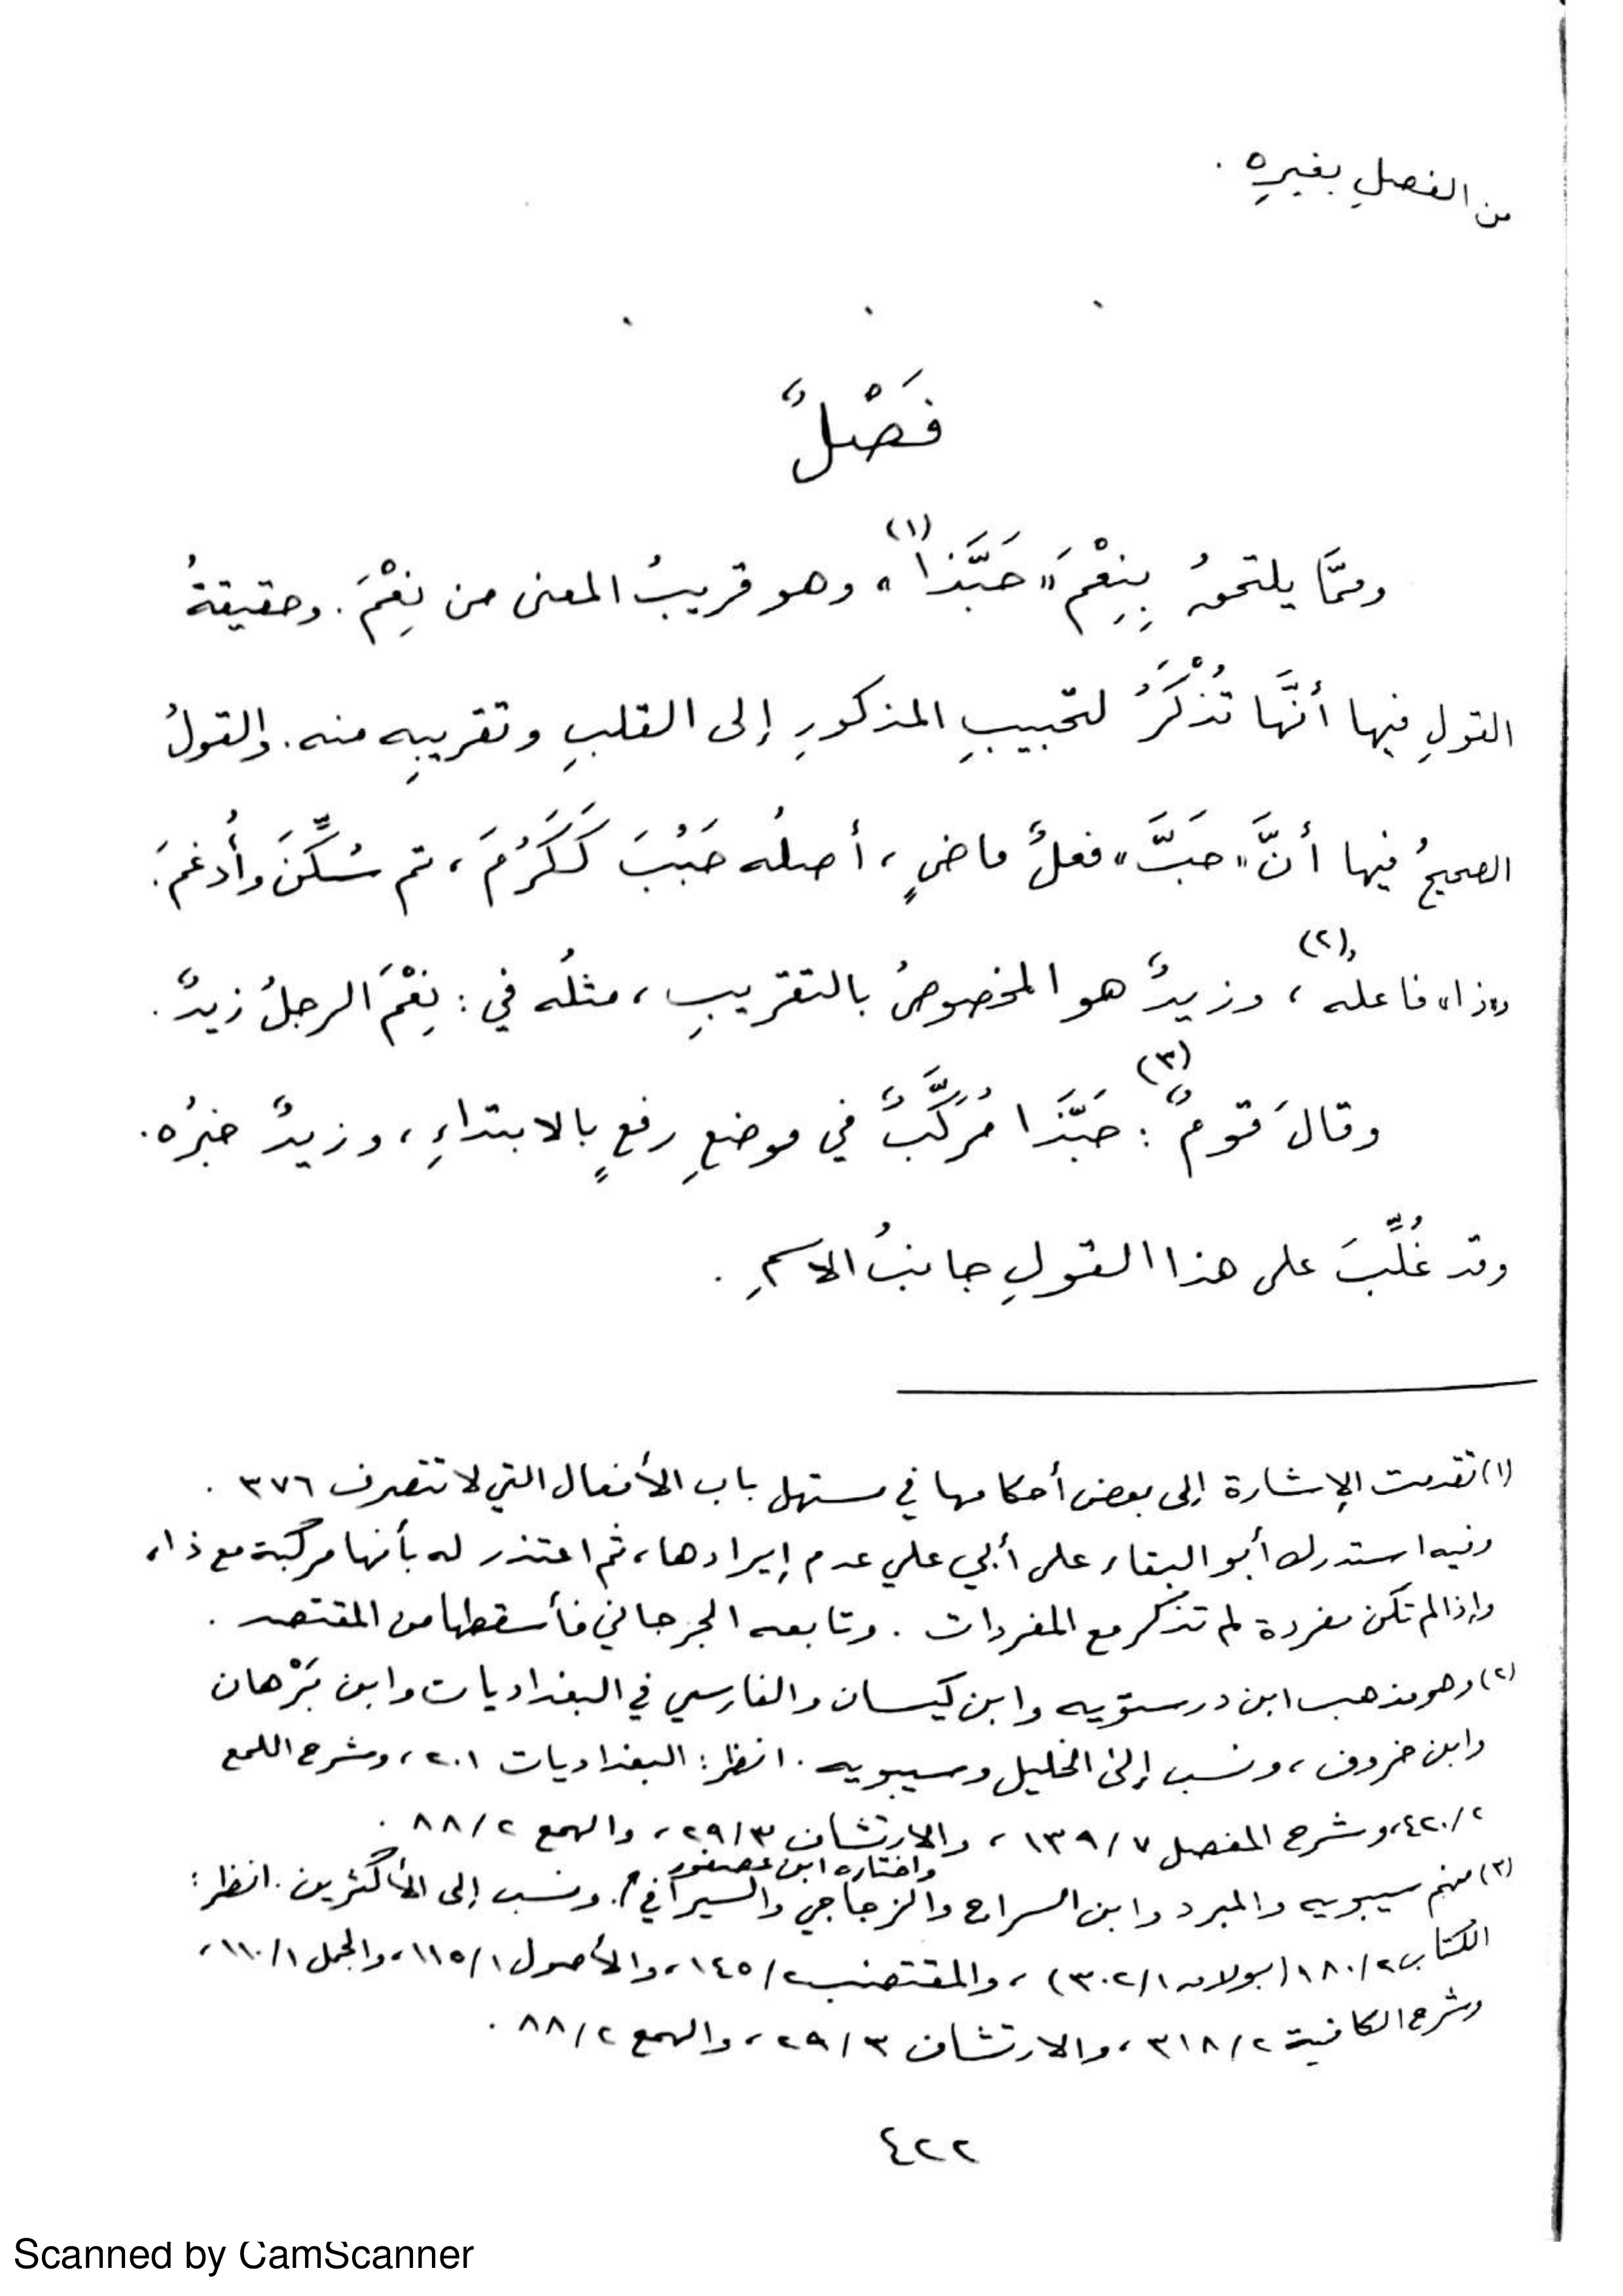 من الفصلِ بغيرِه .
فَصْلٌ
وممَّا يلتحقُ بِنِعْمَ «حَبَّذا»(١) وهو قريبُ المعنى من نِعْمَ. وحقيقةُ
القولِ فيها أنَّها تُذْكَرُ لتحبيبِ المذكورِ إلى القلبِ وتقريبِه منه. والقولُ
الصحيحُ فيها أنَّ «حَبَّ» فعلٌ ماضٍ، أصلُه حَبُبَ كَكَرُمَ، ثم سُكِّنَ وأُدغمَ.
و«ذا» فاعلُه(٢)، وزيدٌ هو المخصوصُ بالتقريبِ، مثلُه في: نِعْمَ الرجلُ زيدٌ.
وقالَ قومٌ(٣): حَبَّذَا مُرَكَّبٌ في موضعِ رفعٍ بالابتداءِ، وزيدٌ خبرُه.
وقد غُلِّبَ على هذا القولِ جانبُ الاسمِ .
(١) تقدمت الإشارة إلى بعض أحكامها في مستهل باب الأفعال التي لا تتصرف ٣٧٦ .
وفيه استدرك أبو البقاء على أبي علي عدم إيرادها، ثم اعتذر له بأنها مركبة مع ذا،
وإذا لم تكن مفردة لم تذكر مع المفردات . وتابعه الجرجاني فأسقطها من المقتصد .
(٢) وهو مذهب ابن درستويه وابن كيسان والفارسي في البغداديات وابن بَرْهان
وابن خروف، ونسب إلى الخليل وسيبويه. انظر: البغداديات ٢٠١، وشرح اللمع
٤٢٠/٢، وشرح المفصل ١٣٩/٧، والارتشاف ٢٩/٣، والهمع ٨٨/٢ .
واختاره ابن عصفور
(٣) منهم سيبويه والمبرد وابن السراج والزجاجي والسيرافي. ونسب إلى الأكثرين. انظر:
الكتاب ١٨٠/٢ (بولاق ٣٠٢/١)، والمقتضب ١٤٥/٢، والأصول ١١٥/١، والجمل ١١٠/١،
وشرح الكافية ٣١٨/٢، والارتشاف ٢٩/٣، والهمع ٨٨/٢ .
٤٢٢
Scanned by CamScanner